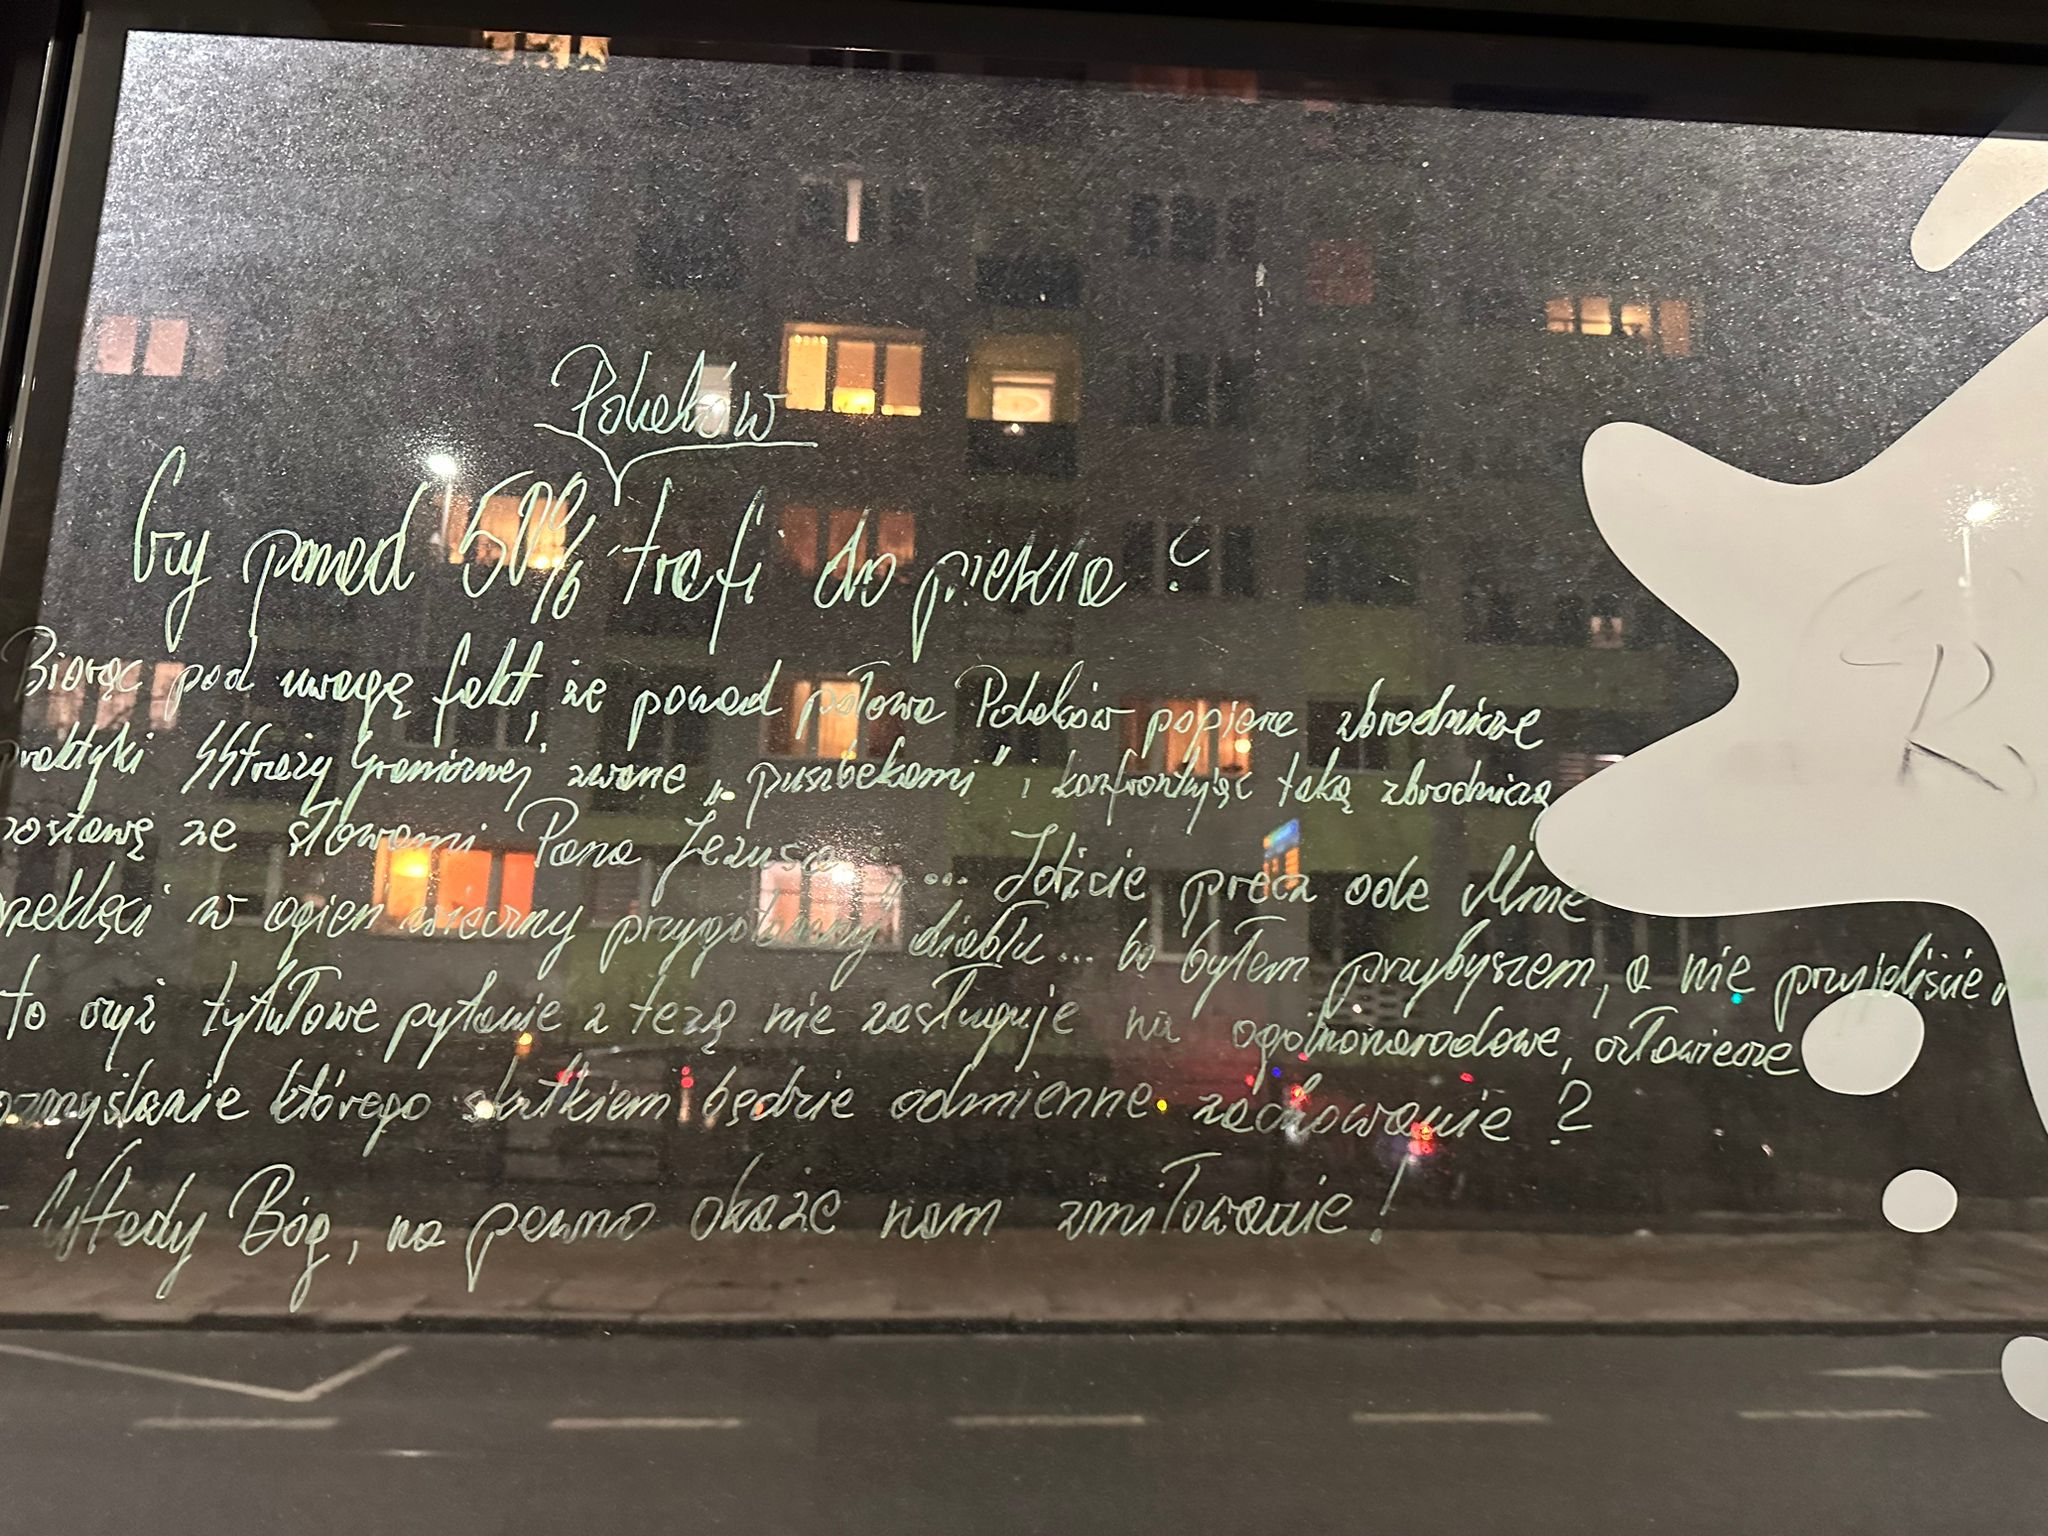 Polaków
Czy ponad 50% trafi do piekła?
Biorąc pod uwagę fakt, że ponad połowa Polaków popiera zbrodnicze
praktyki SStraży Granicznej zwane „puszbekami" i konfrontując taką zbrodniczą
postawę ze słowami Pana Jezusa: „... Idźcie precz ode Mnie
przeklęci w ogień wieczny przygotowany diabłu... bo byłem przybyszem, a nie przyjeliście"
to czyż tytułowe pytanie z tezą nie zasługuje na ogólnonarodowe, człowiecze
rozmyślanie którego skutkiem będzie odmienne zachowanie?
- Wtedy Bóg, na pewno okaże nam zmiłowanie!
R